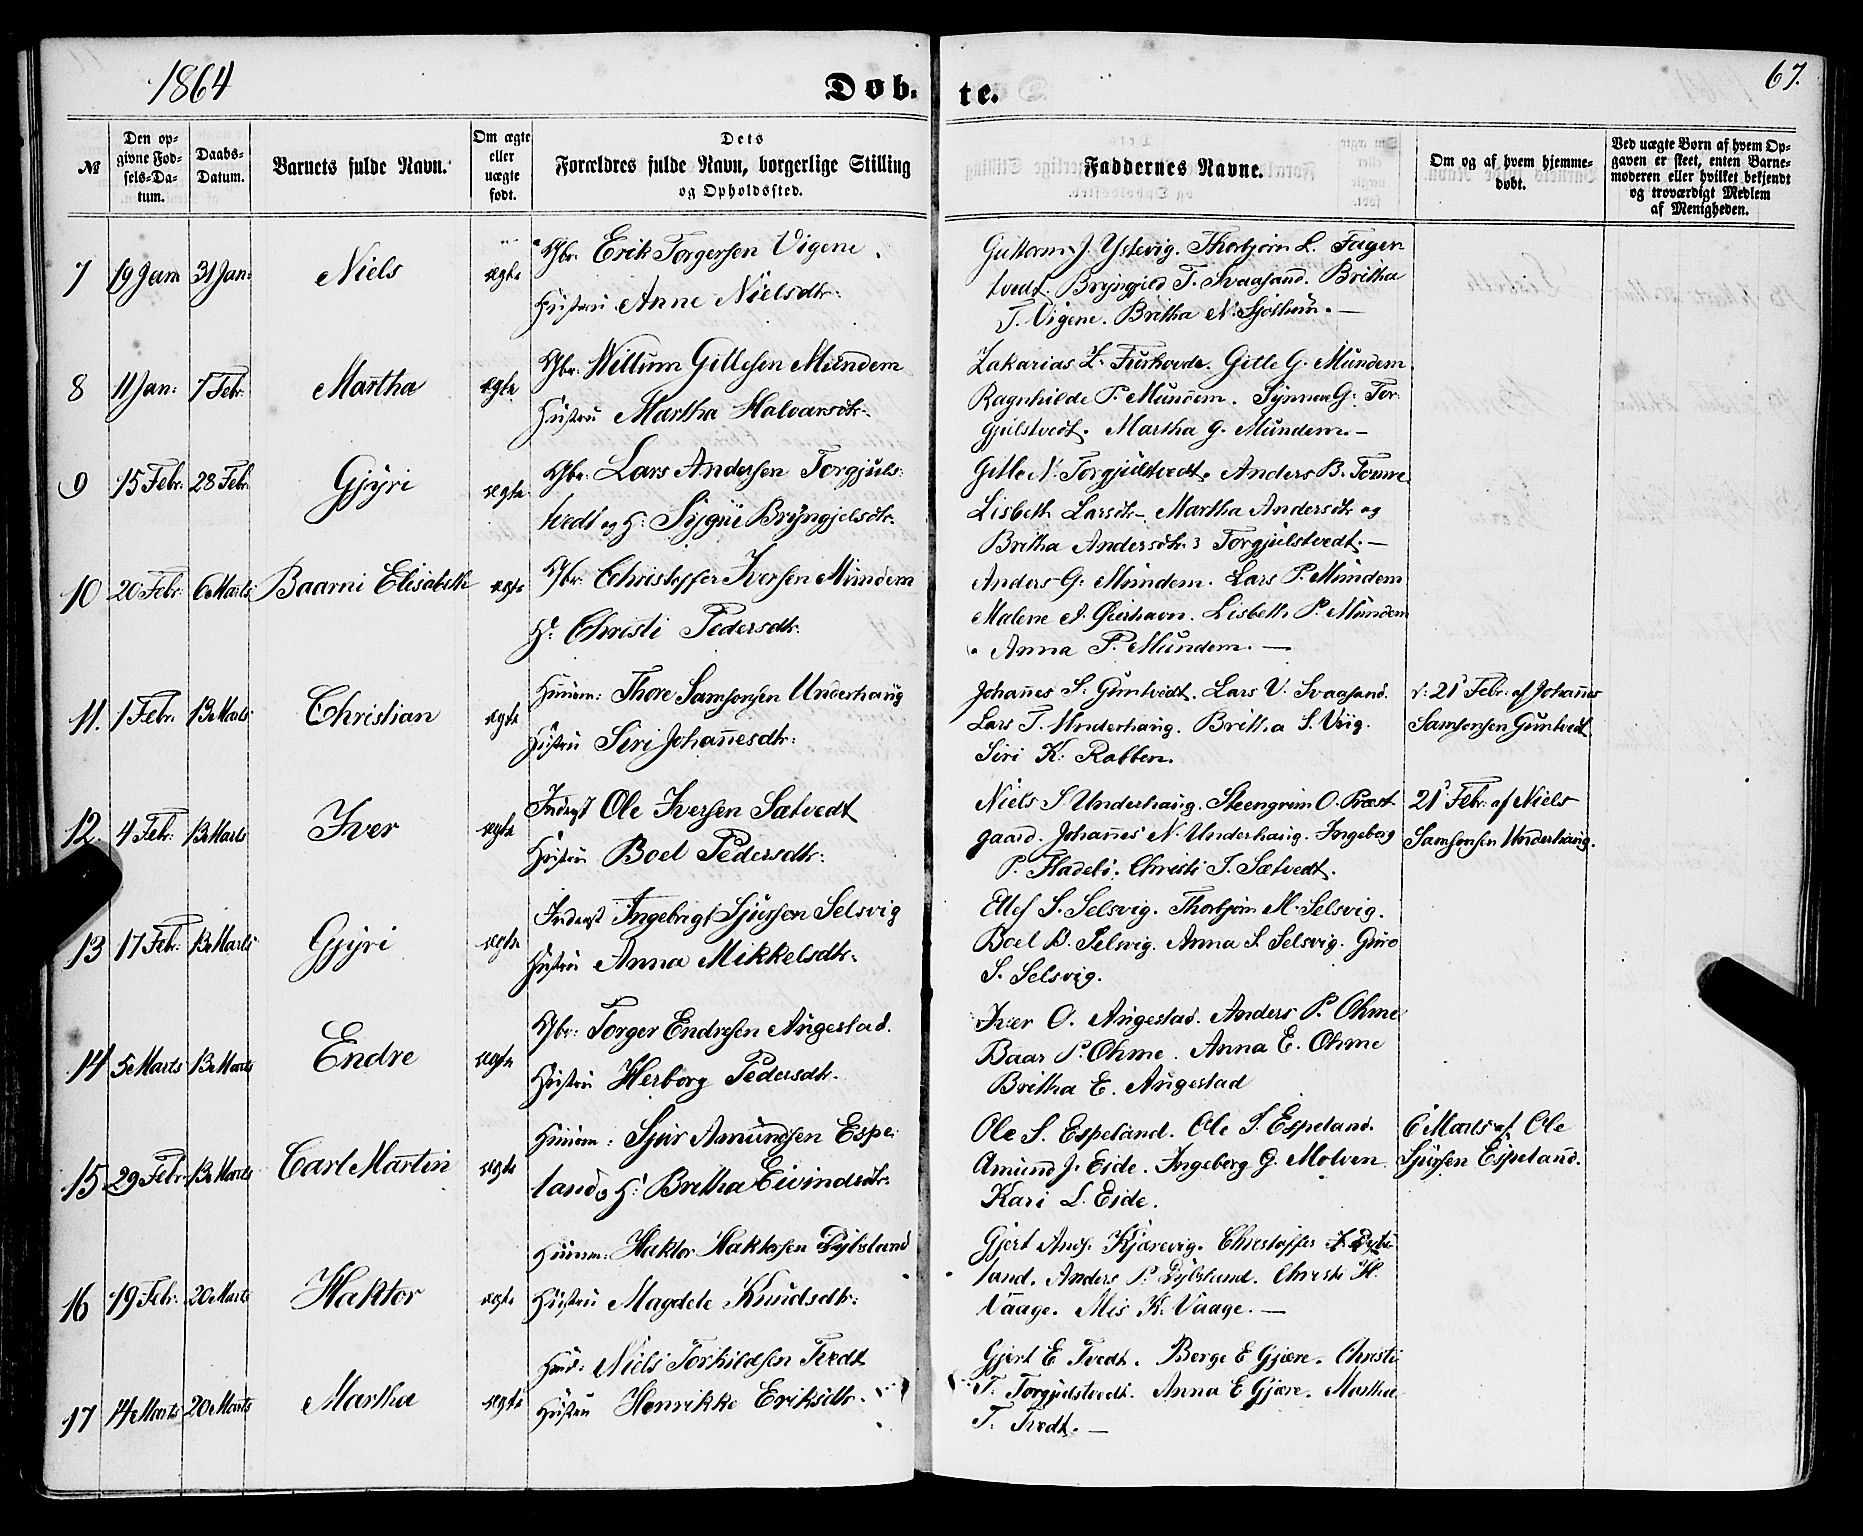 1864
Døb-
te.
67.
№
Den op-
givne Fød-
sels-Da-
tum.
Daabs-
Datum.
Barnets fulde Navn.
Om ægte
eller
uægte
født.
Dets
Forældres fulde Navn, borgerlige Stilling
og Opholdssted.
Faddernes Navne.
Om og af hvem hjemme-
døbt.
Ved uægte Børn af hvem Op-
gaven er skeet, enten Barne-
moderen eller hvilket bekjendt
og troværdigt Medlem
af Menigheden.
7 19 Jan 31 Jan: Niels ægte
Gbr. Erik Torgersen Vigene
Hustru Anne Nielsdtr:
Guttorm J. Ystevig. Thorbjørn L. Fagertvedt. Bryngjeld T. Svaasand. Britha
T. Vigene. Britha N. —
8 11 Jan: 7 Febr. Martha ægte
Gbr: Willum Gillesen Mundem
Hustru Martha Halvarsdtr.
Zakarias L. Gitle G. Mundem.
Ragnhilde P. Mundem. Synneva G. Tor-
gjulstvedt. Martha G. Mundem. —
9 15 Febr. 28 Febr. Gjyri ægte
Gbr: Lars Andersen Torgjuls-
tvedt og H: Sygni Bryngjelsdtr.
Gitle N. Torgjulstvedt. Anders B.
Lisbeth Larsdtr. Martha Andersdtr og
Britha Andersdtr: 3 Torgjulstvedt. —
10 20 Febr: 6 Marts Baarni Elisabeth ægte
Gbr: Christoffer Iversen Mundem
H: Christi Pedersdtr.
Anders G. Mundem. Lars P. Mundem
Malene A. Lisbeth P. Mundem
Anna P. Mundem. —
11. 1 Febr. 13 Marts Christian ægte
Huusm: Thore Samsonsen Underhaug
Hustru Siri Johannesdtr:
Johannes S. Guntvedt. Lars V. Svaasand.
Lars T. Underhaug. Britha S. Viig.
Siri K. Rabben.
21 Febr. af Johannes
Samsonsen Guntvedt
12. 4 Febr. 13 Marts Iver ægte
Inderst Ole Iversen Sætvedt
Hustru Boel Pedersdtr:
Niels S Underhaug. Steengrim O. Præst-
gaard. Johannes N. Underhaug. Ingeborg
P. Fladebø. Christi I. Sætvedt.
21 Febr. af Niels
Samsonsen Underhaug.
13 17 Febr. 13 Marts Gjyri ægte
Inderst Ingebrigt Sjursen Selsvig
Hustru Anna Mikkelsdtr.
Ellef S. Selsvig. Thorbjørn M. Selsvig.
Boel B. Selsvig. Anna S. Selsvig. Guro
S. Selsvig.
14 5 Marts 13 Marts Endre ægte
Gbr: Torger Endresen Augestad.
Hustru Herborg Pedersdtr.
Iver O. Augestad. Anders P. Ohme
Baar P. Ohme. Anna E. Ohme
Britha E. Augestad
15 29 Febr. 13 Marts Carl Martin ægte
Huusm: Sjur Amundsen Espe-
land, H: Britha Eivindsdtr.
Ole S. Espeland. Ole S. Espeland.
Amund J. Eide. Ingeborg G. Molven
Kari L. Eide.
6 Marts af Ole
Sjursen Espeland.
16 19 Febr. 20 Marts Haktor ægte
Huusm: Haktor Haktorsen Dybsland
Hustru Magdele Knudsdtr:
Gjert Kjærevig. Christoffer Dybs-
land. Anders P. Dybsland. Christi H.
Vaage. K. Vaage. —
17 14 Marts 20 Marts Martha ægte
Niels Torkildsen Tvedt
Hustru Henrikke Eriksdtr.
Gjert E Tvedt. Børge E Gjære. Christi
T. Torgjulstvedt. Anna E Gjære. Martha
T. Tvedt. —